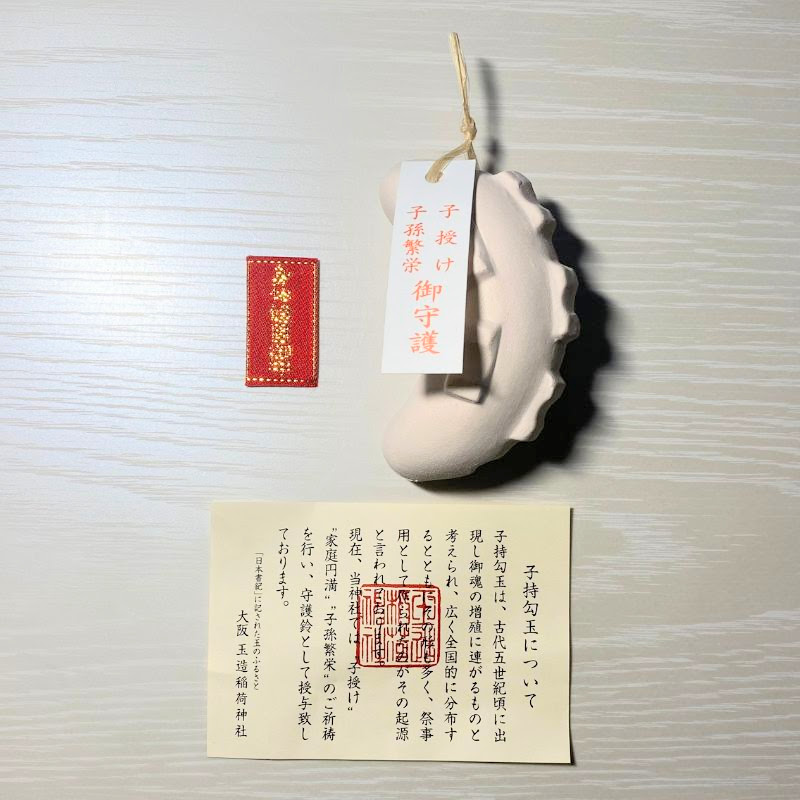 子授け
子孫繁栄
御守護
子持勾玉について
子持勾玉は、古代五世紀頃に出
現し御魂の増殖に連がるものと
考えられ、広く全国的に分布す
るとともにその形も多く、祭事
用として作られたのがその起源
と言われております。
現在、当神社では〝子授け〟
〝家庭円満〟〝子孫繁栄〟のご祈祷
を行い、守護鈴として授与致し
ております。
「日本書紀」に記された玉のふるさと
大阪 玉造稲荷神社